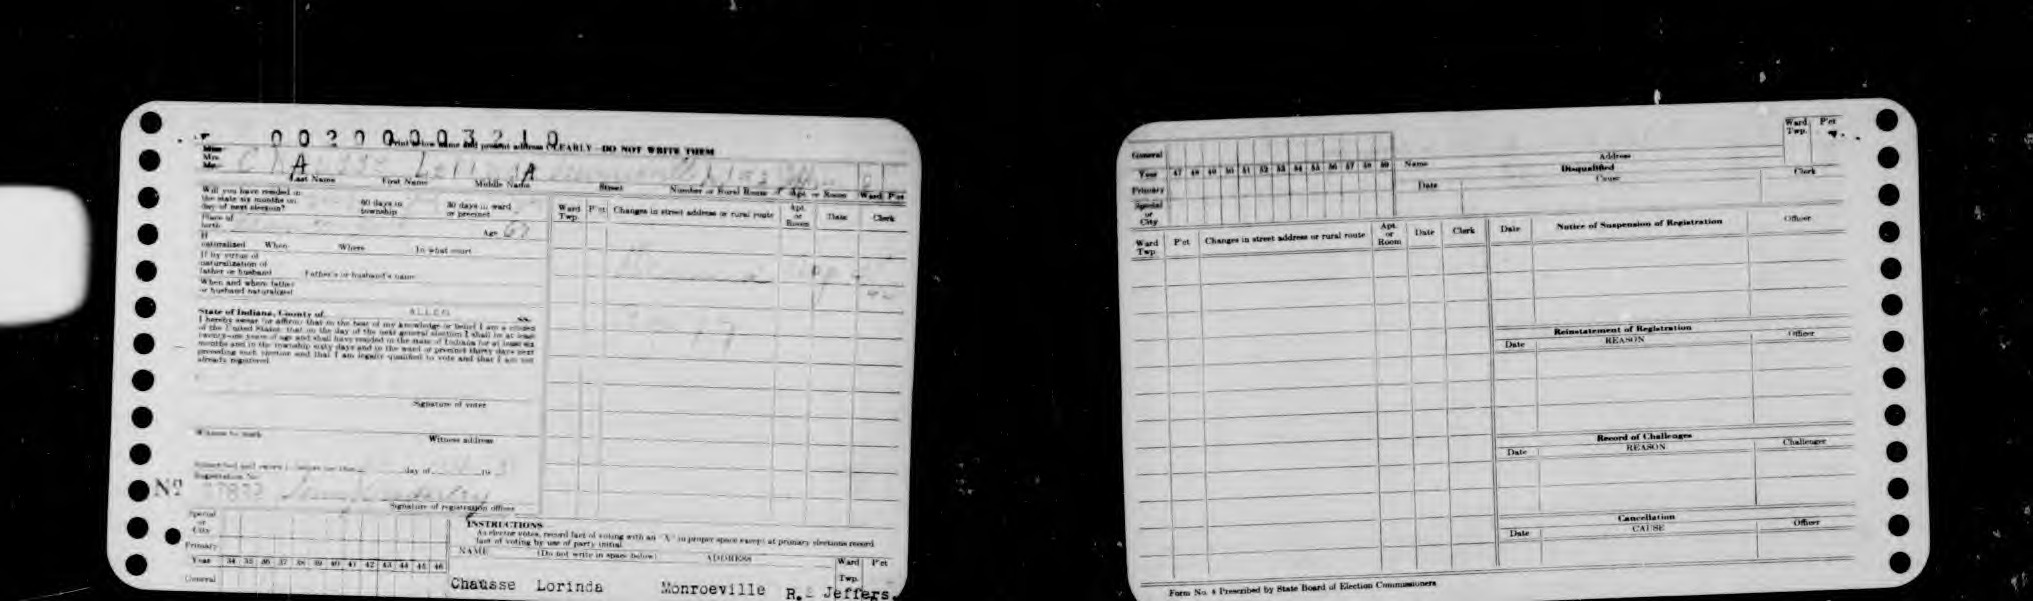 0 0 2 0 0 0 0 3 2 1 0
Print below name and present address CLEARLY—DO NOT WRITE THEM
Miss
Mrs.
Mr.
Last Name First Name Middle Name Street Number or Rural Route Apt. or Room Ward P'ct
Will you have resided in
the state six months on
day of next election?
60 days in
township
30 days in ward
or precinct
Place of
birth
Age 67
If
naturalized When Where In what court
If by virtue of
naturalization of
father or husband Father's or husband's name
When and where father
or husband naturalized
State of Indiana, County of ALLEN ss.
I hereby swear (or affirm) that to the best of my knowledge or belief I am a citizen
of the United States; that on the day of the next general election I shall be at least
twenty-one years of age and shall have resided in the state of Indiana for at least six
months and in the township sixty days and in the ward or precinct thirty days next
preceding such election and that I am legally qualified to vote and that I am not
already registered.
Signature of voter
Witness to mark Witness address
Subscribed and sworn to before me this day of 19
Registration No.
Nº
Signature of registration officer
Ward
Twp. P'ct Changes in street address or rural route Apt.
or
Room Date Clerk
Special
or
City
Primary
Year 34 35 36 37 38 39 40 41 42 43 44 45 46
General
INSTRUCTIONS
As elector votes, record fact of voting with an "X" in proper space except at primary elections record
fact of voting by use of party initial.
NAME (Do not write in space below) ADDRESS Ward
Twp. P'ct
Chausse Lorinda Monroeville R. Jeffers.
General
Year 47 48 49 50 51 52 53 54 55 56 57 58 59
Primary
Special
or
City
Name Address Ward
Twp. P'ct
Disqualified
Date Cause Clerk
Ward
Twp P'ct Changes in street address or rural route Apt.
or
Room Date Clerk
Date Notice of Suspension of Registration Officer
Reinstatement of Registration
Date REASON Officer
Record of Challenges
Date REASON Challenger
Cancellation
Date CAUSE Officer
Form No. 4 Prescribed by State Board of Election Commissioners